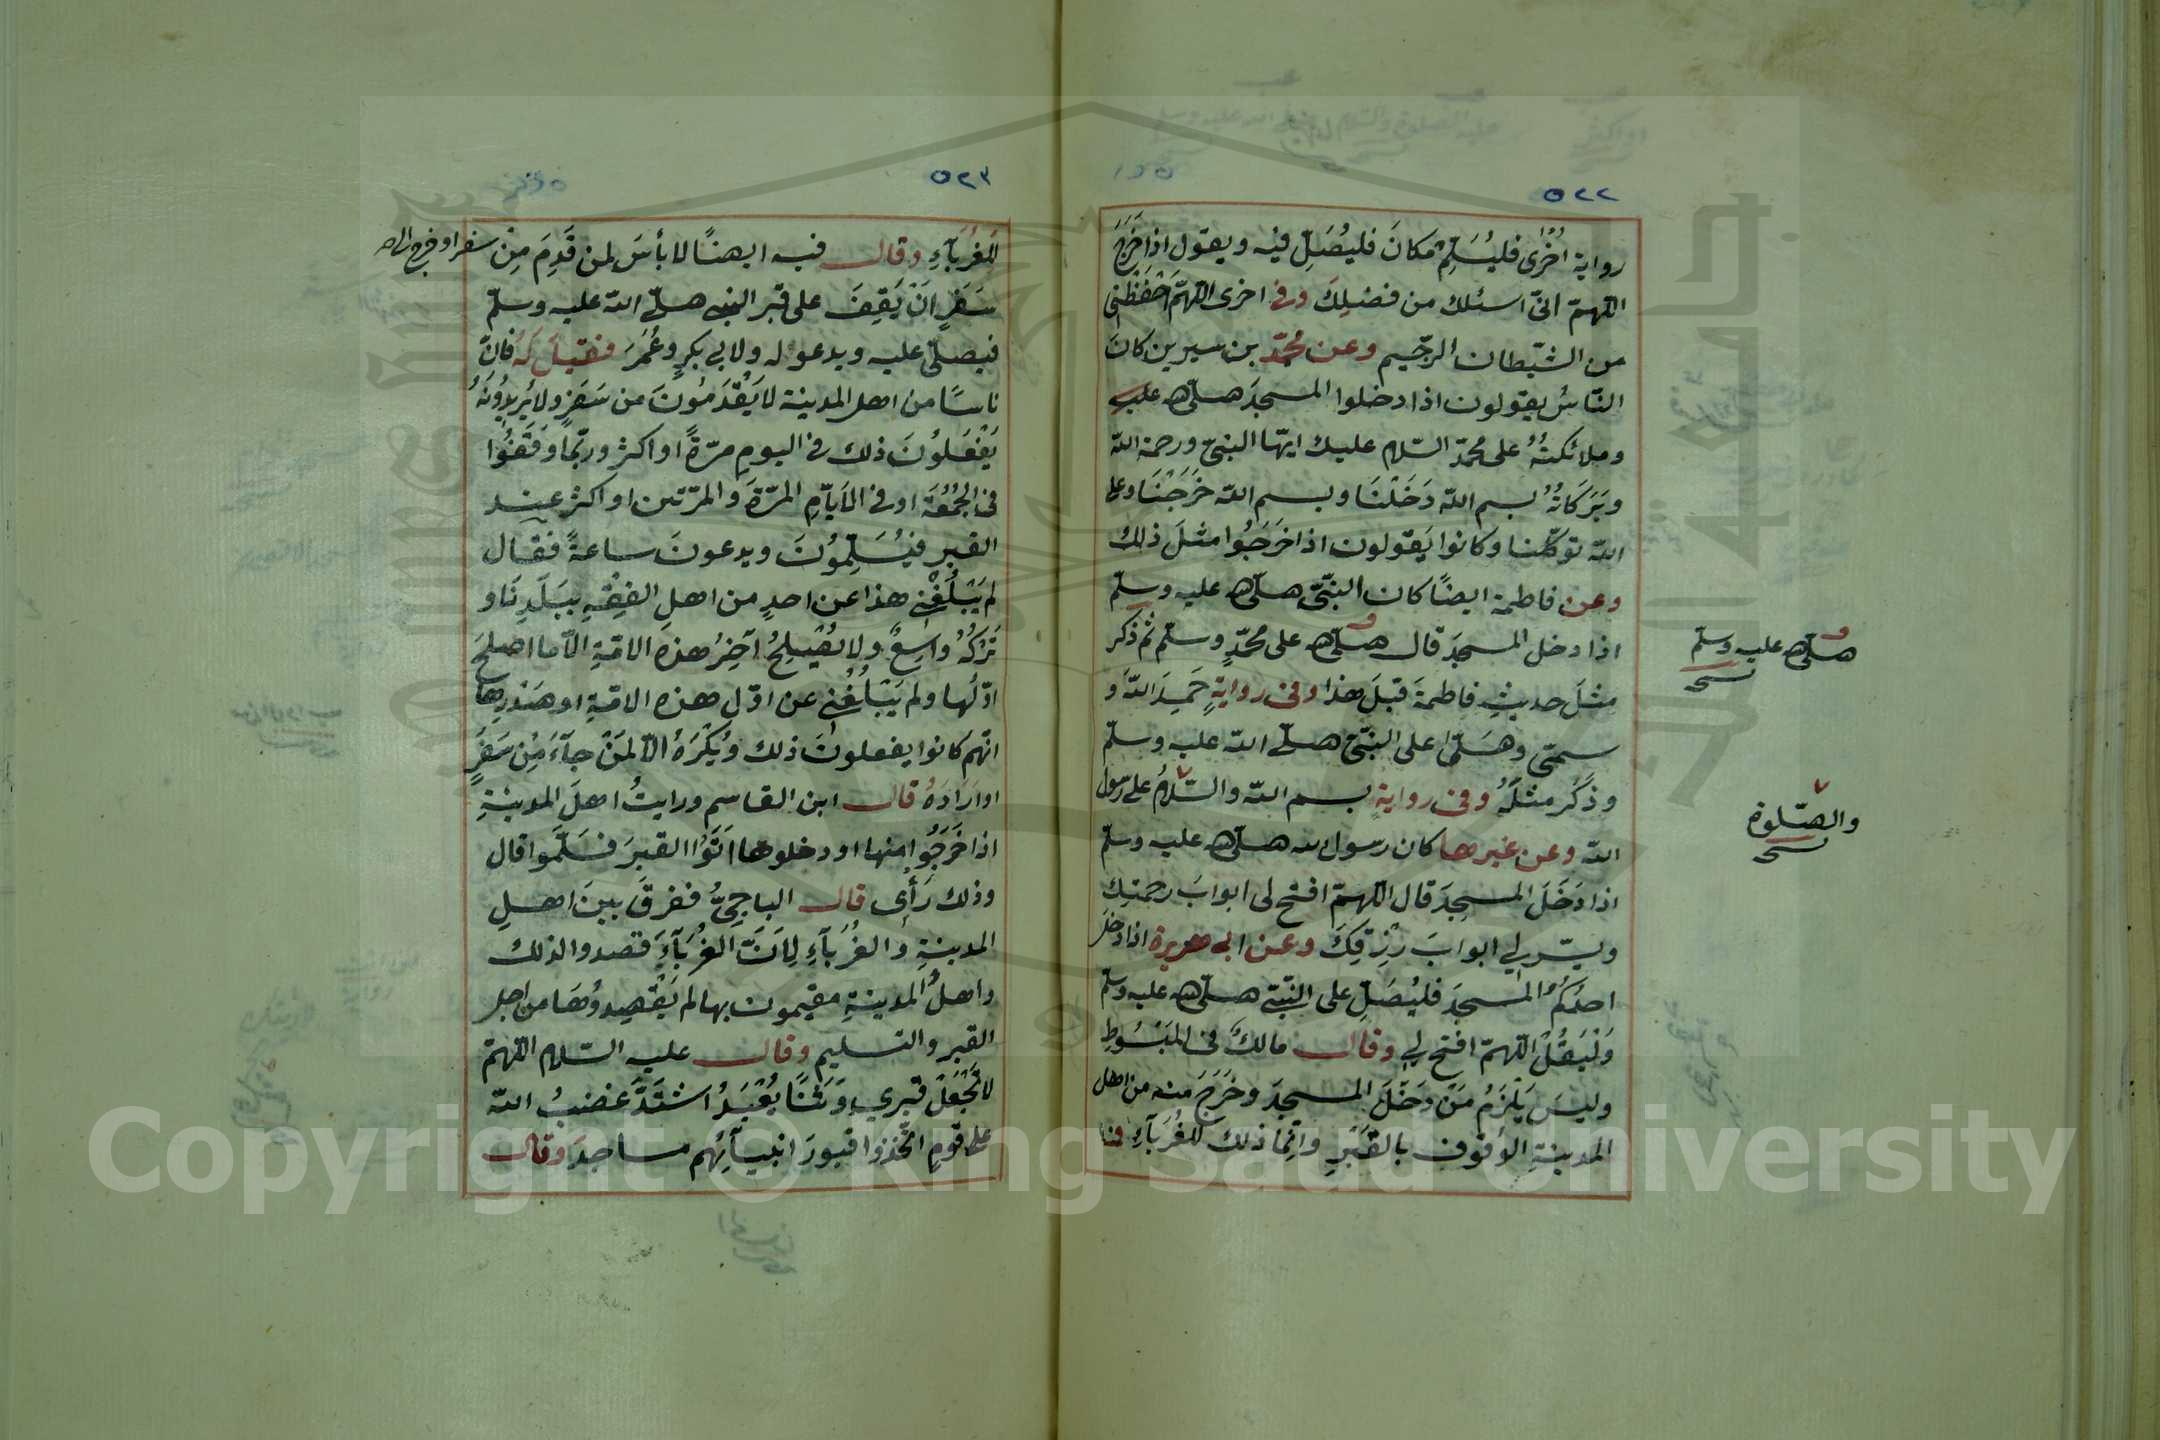 ٥٢٢
رواية اُخْرٰى فليُسَلِّمْ مكانَ فليُصَلِّ فيه ويقول اذا خَرَجَ
اللّٰهمّ انّي اسئلك من فضلِكَ وفى اخرى اللّٰهمَّ احْفَظْنى
من الشّيطان الرجّيم وعن محمّد بن سيرين كانَ
النّاسُ يقولون اذا دخلوا المسجدَ صلى الله عليه
وملائكتُهُ على محمّد السّلام عليك ايّها النبىّ ورحمة اللّه
وبَرَكَاتُهُ بسم اللّه دَخَلْنَا وبسم اللّه خَرَجْنَا وعلى
اللّه توكّلنا وكانوا يَقولون اذا خَرَجُوا مثلَ ذلك
وعن فاطمة ايضًا كان النبّىّ صلى الله عليه وسلّم
اذا دخل المسجدَ قال صلى الله على محمّدٍ وسلّم ثمّ ذكر
مثلَ حديثِ فاطمةَ قبلَ هذا وفى روايةٍ حَمِدَ اللّهَ و
سمّى وصَلّى على النبّىّ صلّى اللّه عليه وسلّم
وذكَر مثلَهُ وفى روايةٍ بسم اللّه والسّلامُ على رسول
اللّه وعن غيرها كان رسول الله صلى الله عليه وسلّم
اذا دَخَلَ المسجدَ قال اللّٰهمّ افتح لى ابوابَ رحمتِك
ويسّر لي ابوابَ رِزقِكَ وعن ابى هريرة اذا دخَلَ
احدُكُمُ المسجدَ فليُصَلِّ على النبّىّ صلى الله عليه وسلم
وَلْيَقُلْ اللّٰهمّ افتح لي وقال مالكٌ فى المَبْسُوطِ
وليسَ يَلْزَمُ مَنْ دَخَلَ المسجدَ وخَرَجَ منه من اهل
المدينةِ الوُقوف بالقَبْرِ وانّما ذلك للغُرَبَآءِ
صلى الله عليه وسلّم
نسخه
والصّلوة
نسخه
٥٢٣
للغُرَبَآءِ وقال فيه ايضًا لا بأسَ لمن قَدِمَ مِنْ سفر او خرج الى
سَفَرٍ اَنْ يَقِفَ على قبر النبى صلّى اللّه عليه وسلّم
فيصلّى عليه ويدعو له ولابي بكرٍ وعُمَرَ فقيلَ لَهُ فانّ
ناسًا من اهل المدينة لا يَقْدَمُونَ من سَفَرٍ ولا يُريدُونَهُ
يَفْعَلُونَ ذلك فى اليومِ مرّةً او اكثر وربّما وَقَفُوا
فى الجُمُعَة او فى الاَيّامِ المرّةَ والمرّتين او اكثر عند
القبر فيُسَلّمُونَ ويدعونَ ساعةً فقال
لم يَبْلُغْنى هذا عن احدٍ من اهلِ الفِقْهِ ببَلَدِنَا و
تَرْكُهُ واسِعٌ ولا يُصْلِحُ آخِرَ هذه الامّةِ الّا ما اصلحَ
اوّلَها ولم يَبْلُغْنى عن اوّلِ هذه الامّةِ او صَدْرِها
انّهم كانوا يفعلونَ ذلك وَيُكْرَهُ الّا لمَنْ جآءَ مِنْ سَفَرٍ
او ارَادَهُ قال ابن القاسم ورايتُ اهلَ المدينةِ
اذا خَرَجُوا منها او دخلوها اَتَوُا القبرَ فسَلَّموا قال
وذلك رَأْيى قال الباجىُّ ففرقَ بينَ اهلِ
المدينةِ والغُرَبَآءِ لِاَنَّ الغُرَبَآءَ قصدوا لذلك
واهلُ المدينةِ مقيمون بها لم يَقْصِدُوهَا من اجل
القبر والتسليم وقال عليه السّلام اللّٰهمّ
لا تَجْعَلْ قبري وَثَنًا يُعْبَدُ اشتَدَّ غضبُ اللّه
على قومٍ اتّخذوا قبورَ انبيآئِهم مساجدَ وقال
Copyright © King Saud University